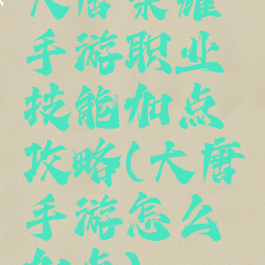 大唐荣耀
手游职业
技能加点
攻略(大唐
手游怎么
加点)